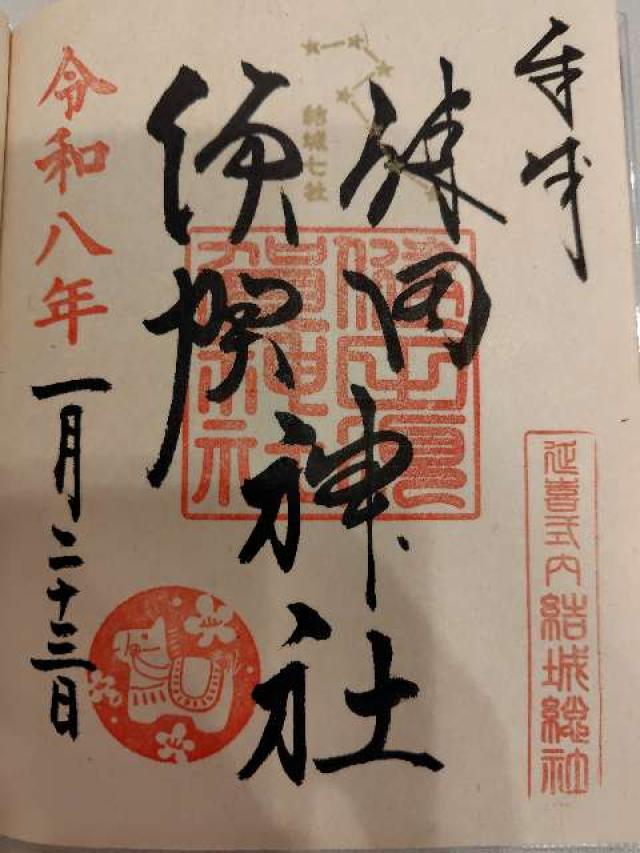 奉拝
延喜式内結城総社
健田
須賀
神社
結城七社
健田須
賀神社
令和八年一月二十三日